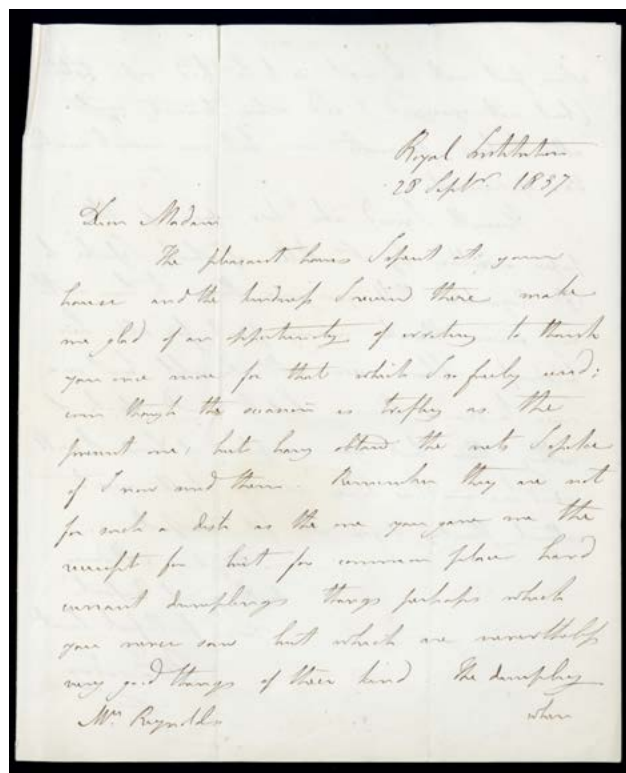 Royal Institution
28 Septr. 1837
Dear Madam
The pleasant hours I spent at your
house and the kindness I received there make
me glad of an opportunity of writing to thank
you once more for that which I so freely used;
even though the occasion is trifling as the
present one; but having obtained the nets I spoke
of I now send them. Remember they are not
for such a dish as the one you gave me the
receipt for but for common place hard
currant dumplings things perhaps which
you never saw but which are nevertheless
very good things of their kind The dumpling
Mrs Reynolds
when